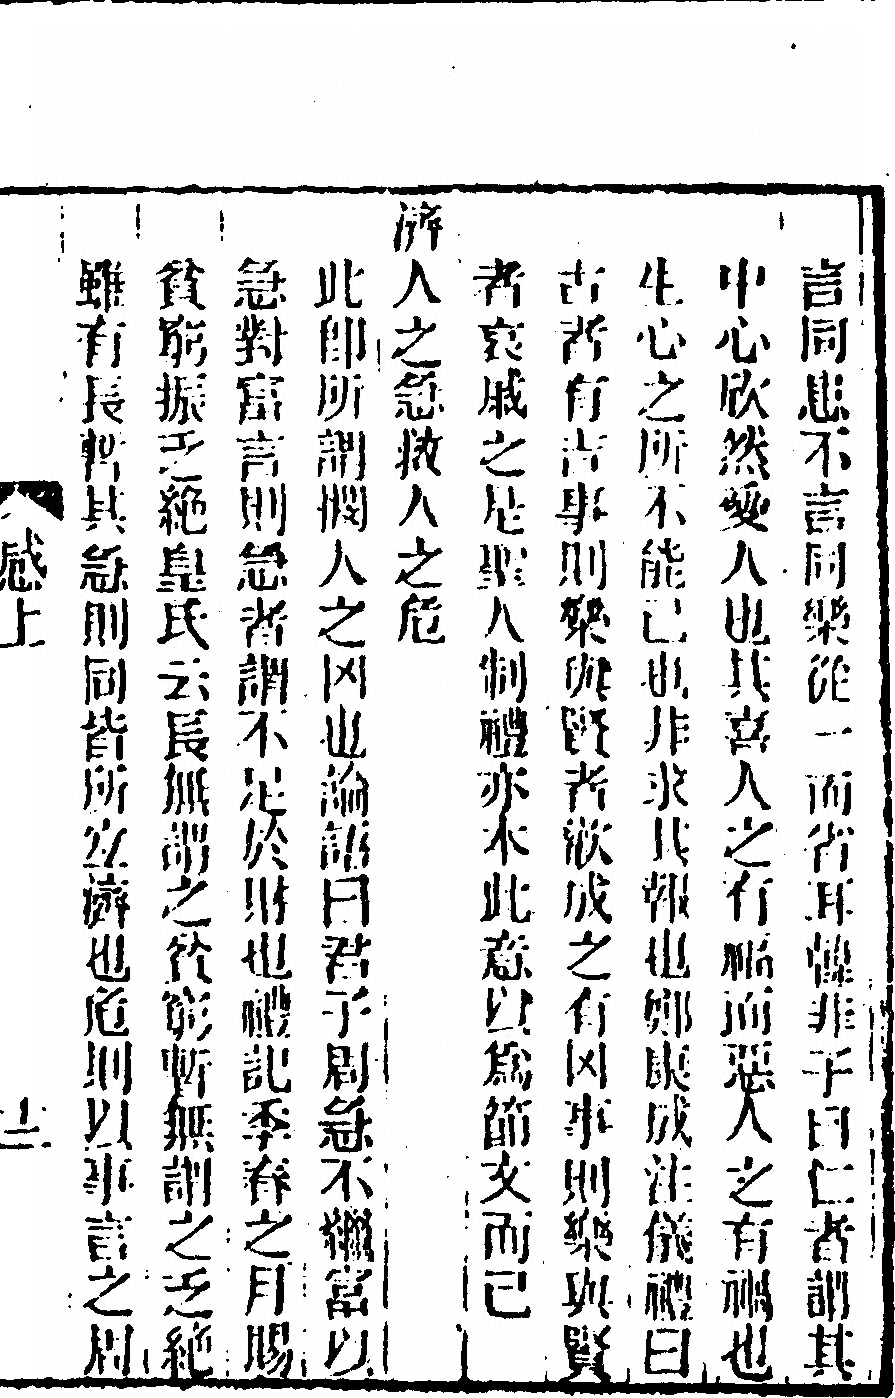 言同患不言同樂從一而省耳韓非子曰仁者謂其
中心欣然愛人也其喜人之有福而惡人之有禍也
生心之所不能已也非求其報也鄭康成注儀禮曰
古者有吉事則樂與賢者歡成之有凶事則樂與賢
者哀戚之是聖人制禮亦本此意以為節文而已
濟人之急救人之危
此即所謂憫人之凶也論語曰君子周急不繼富以
急對富言則急者謂不足於財也禮記季春之月賜
貧窮振乏絶皇氏云長無謂之貧窮暫無謂之乏絶
雖有長暫其急則同皆所宜濟也危則以事言之周
感上
十二